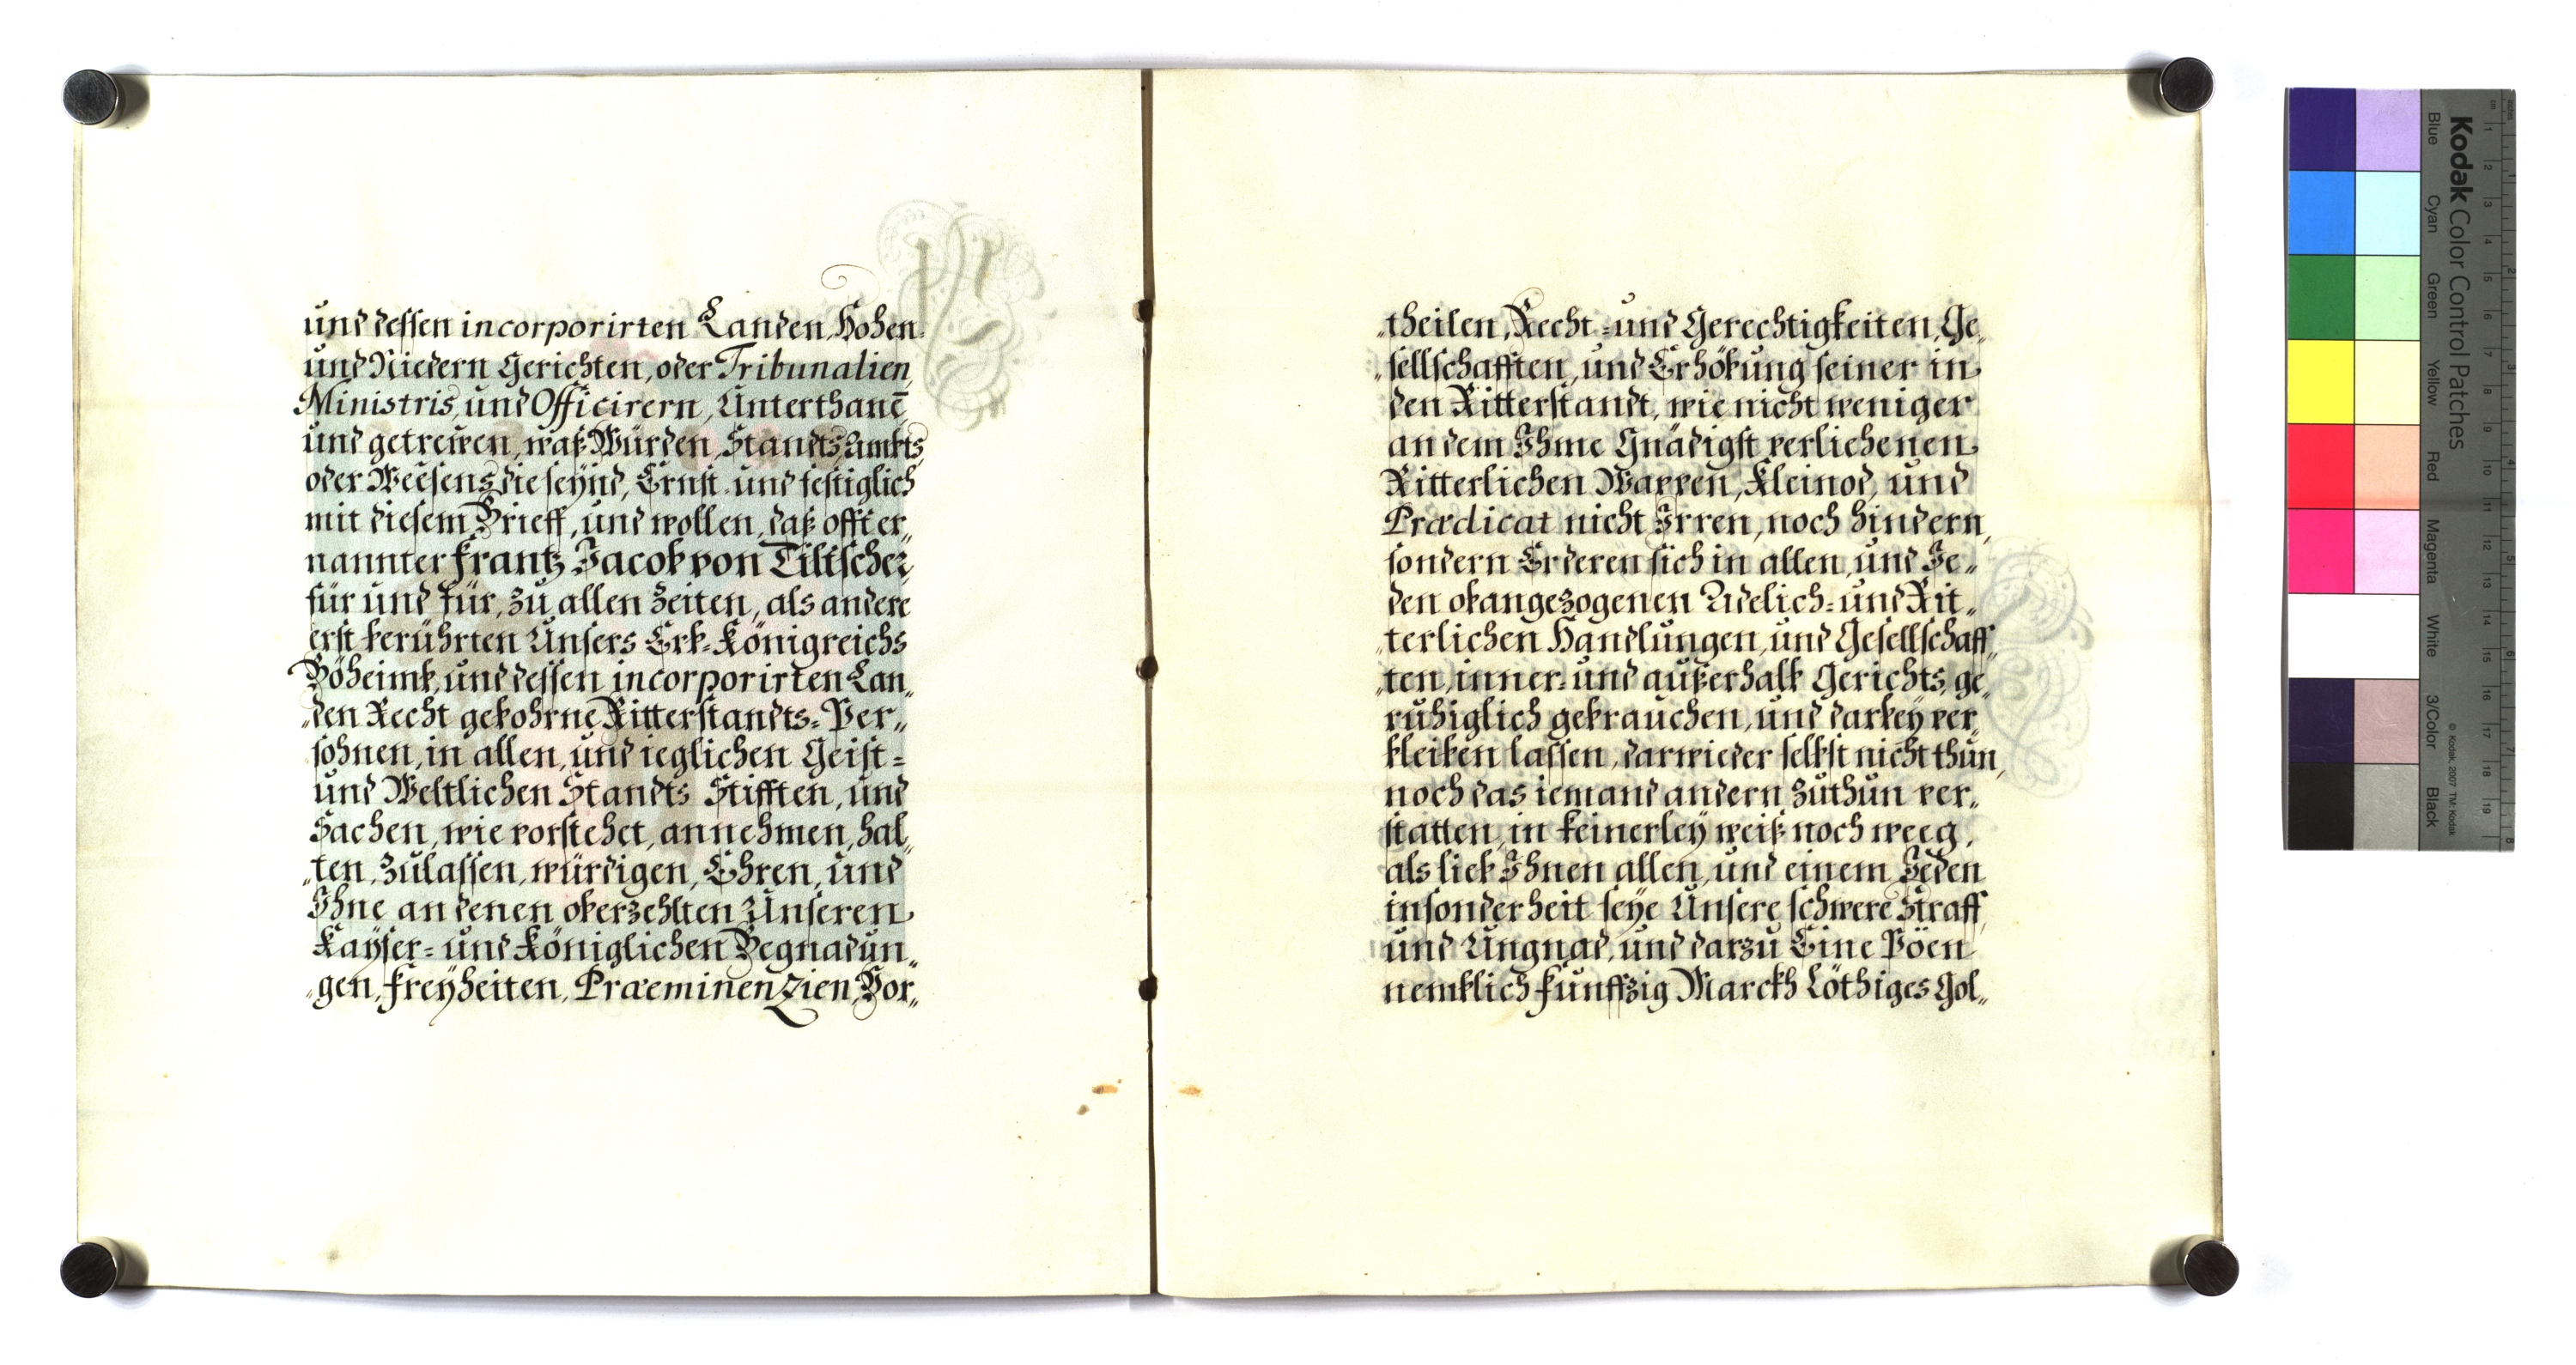 und dessen incorporirten Landen, Hohen
und Niedern Gerichten, oder Tribunalien,
Ministris, und Officirern, Unterthanē
und getreüen, waß Würden, Standts, Ambts,
oder Weesens die seÿnd, Ernst- und festiglich
mit diesem Brieff, und wollen, daß offt er„
nannter Frantz Jacob von Tiltscher,
für und für, zu allen Zeiten, als andere
erst berührten Unsers Erb-Königreichs
Böheimb, und dessen incorporirten Lan„
„den Recht gebohrne Ritterstandts-Per„
sohnen, in allen, und ieglichen Geist-
und Weltlichen Standts Stifften, und
Sachen, wie vorstehet, annehmen, hal„
„ten, Zulassen, würdigen, Ehren, und
Ihne an denen oberzehlten Unseren
Kaÿser- und Königlichen Begnadun„
„gen, Freÿheiten, Præeminenzien, Vor„
„theilen, Recht- und Gerechtigkeiten, Ge„
„sellschafften, und Erhöbung seiner in
den Ritterstandt, wie nicht weniger
an dem Ihme Gnädigst verliehenen
Ritterlichen Wappen, Kleinod, und
Prædicat nicht Irren, noch hindern,
sondern Er deren sich in allen, und Je„
den obangezogenen Adelich- und Rit„
„terlichen Handlungen, und Gesellschaff„
„ten, inner- und außerhalb Gerichts, ge„
ruhiglich gebrauchen, und darbeÿ ver„
bleiben lassen, darwieder selbst nicht thun,
noch das iemand andern zuthun ver„
statten, in keinerleÿ weiß noch weeg,
als lieb Ihnen allen, und einem Jeden
insonderheit seÿe Unsere schwere Straff,
und Ungnad, und darzu Eine Pöen
nemblich funffzig Marckh Löthiges Gol„
Kodak Color Control Patches
Blue Cyan Green Yellow Red Magenta White 3/Color Black
© Kodak, 2007 TM: Kodak